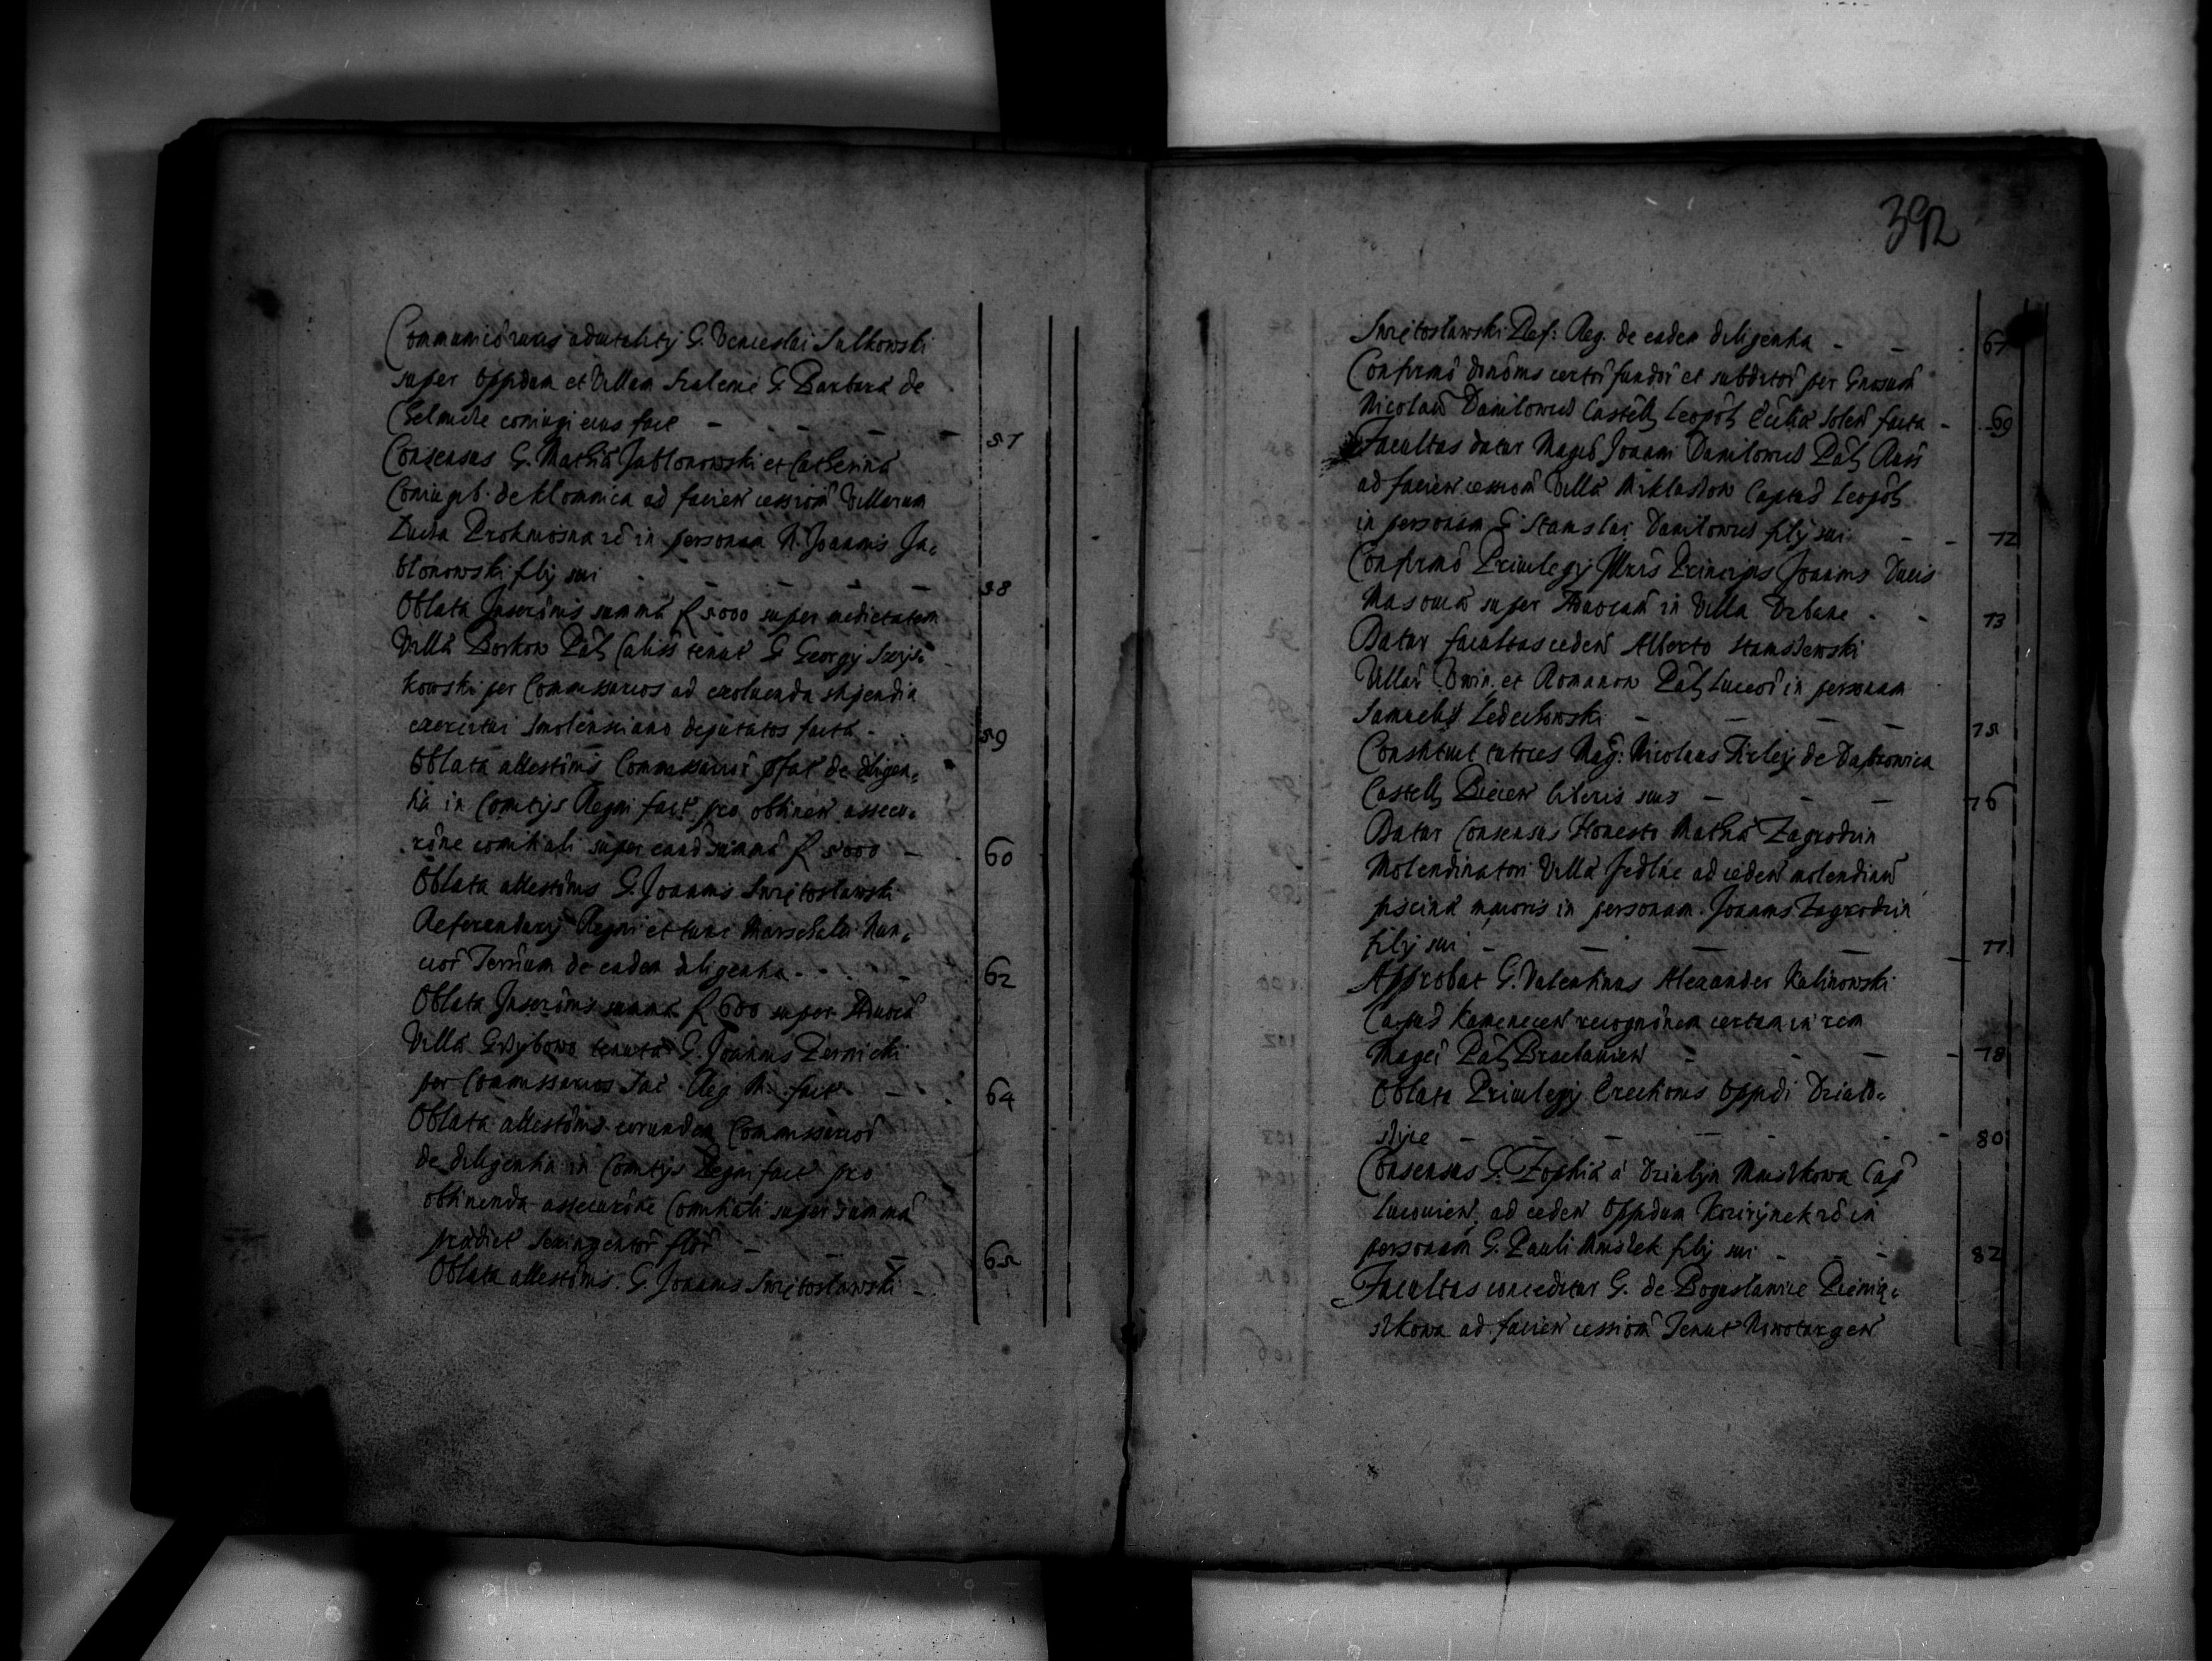 Communicõ iuris aduitalitij G. Venceslai Sulkowski
super Oppidum et Villam G. Barbarã de
coniugi eius fact
57
Consensus G. Mathiã Jabłonowski et Catherinã
Coniugib. de Kłomnica ad facien cessionẽ Villarum
in personam N. Joannis Ja=
błonowski filij sui
58
Oblata Inscrõnis summã fl 5000 super medietatem
Villã Borkow Pał Caliss tenut G Georgij
kowski per Commissarios ad exoluenda stipendia
exercitui Smolensciano deputatos facta
59
Oblata attestõnis Commissariorũ pfat de diligen=
tia in Comitijs Regni fact pro obtinen assecu=
rõne comitiali super eand summã fl 5000
60
Oblata attestõnis G. Joannis Swiętosławski
Referendarij Regni et tunc Marschalci Nun=
ciorũ Terrarum de eadem diligentia
62
Oblata Inscrõnis summã fl 600 super Aduocã
Villã Grzybowo tenutã G. Joannis Zernicki
per Commissarios Sac Reg M. fact
64
Oblata attestõnis eorundem Commissariorũ
de diligentia in Comitijs Regni fact pro
obtinenda assecurõne Comitiali super summã
prædict sexingentorũ flor
65
Oblata attestõnis G. Joannis Swiętosławski
392
Swiętosławski Ref: Reg. de eadem diligentia
67
Confirmõ donõnis certorũ fundorũ et subditorũ per Gnosum
Nicolaũ Daniłowicz Castell Leopol facta
69
Facultas datur Magco Joanni Daniłowicz Pał Russ
ad facien cessionẽ Villã Miklaszow Captus Leopol
in personam G Stanislai Daniłowicz filij sui
72
Confirmõ Priuilegij Illris Principis Joannis Ducis
Masouiã super Aduocatiã in Villa Vrbane
73
Datur facultas ceden Alberto Staniszewski
Villas et Romanow Pał Luceor in personam
Samuelis Ledochowski
75
Constituit tutores Mag: Nicolaus Firley de Dąbrowica
Castell Biecen liberis suis
76
Datur Consensus Honesto Mathiã Zagrodzin
Molendinatori Villã Jedlne ad ceden molendinũ
piscinã maioris in personam Joannis Zagrodzin
filij sui
77
Approbat G. Valentinus Alexander Kalinowski
Capus Kamenecen recognõnem certam in rem
Magci Pał Braclauien
78
Oblata Priuilegij Erectionis Oppidi Działo=
szyce
80
Consensus G. Zophiã a Dzialyn Mniszkowa Cap
Lucouien ad ceden Oppidum Kozirynek in
personam G. Pauli Mniszek filij sui
82
Facultas conceditur G. de Bogusławice Pieniąż=
zkowa ad facien cessionẽ Tenut Nowotargen